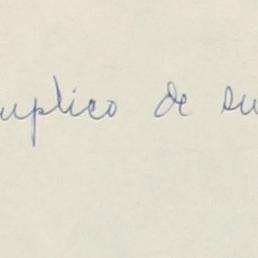 uplico de su